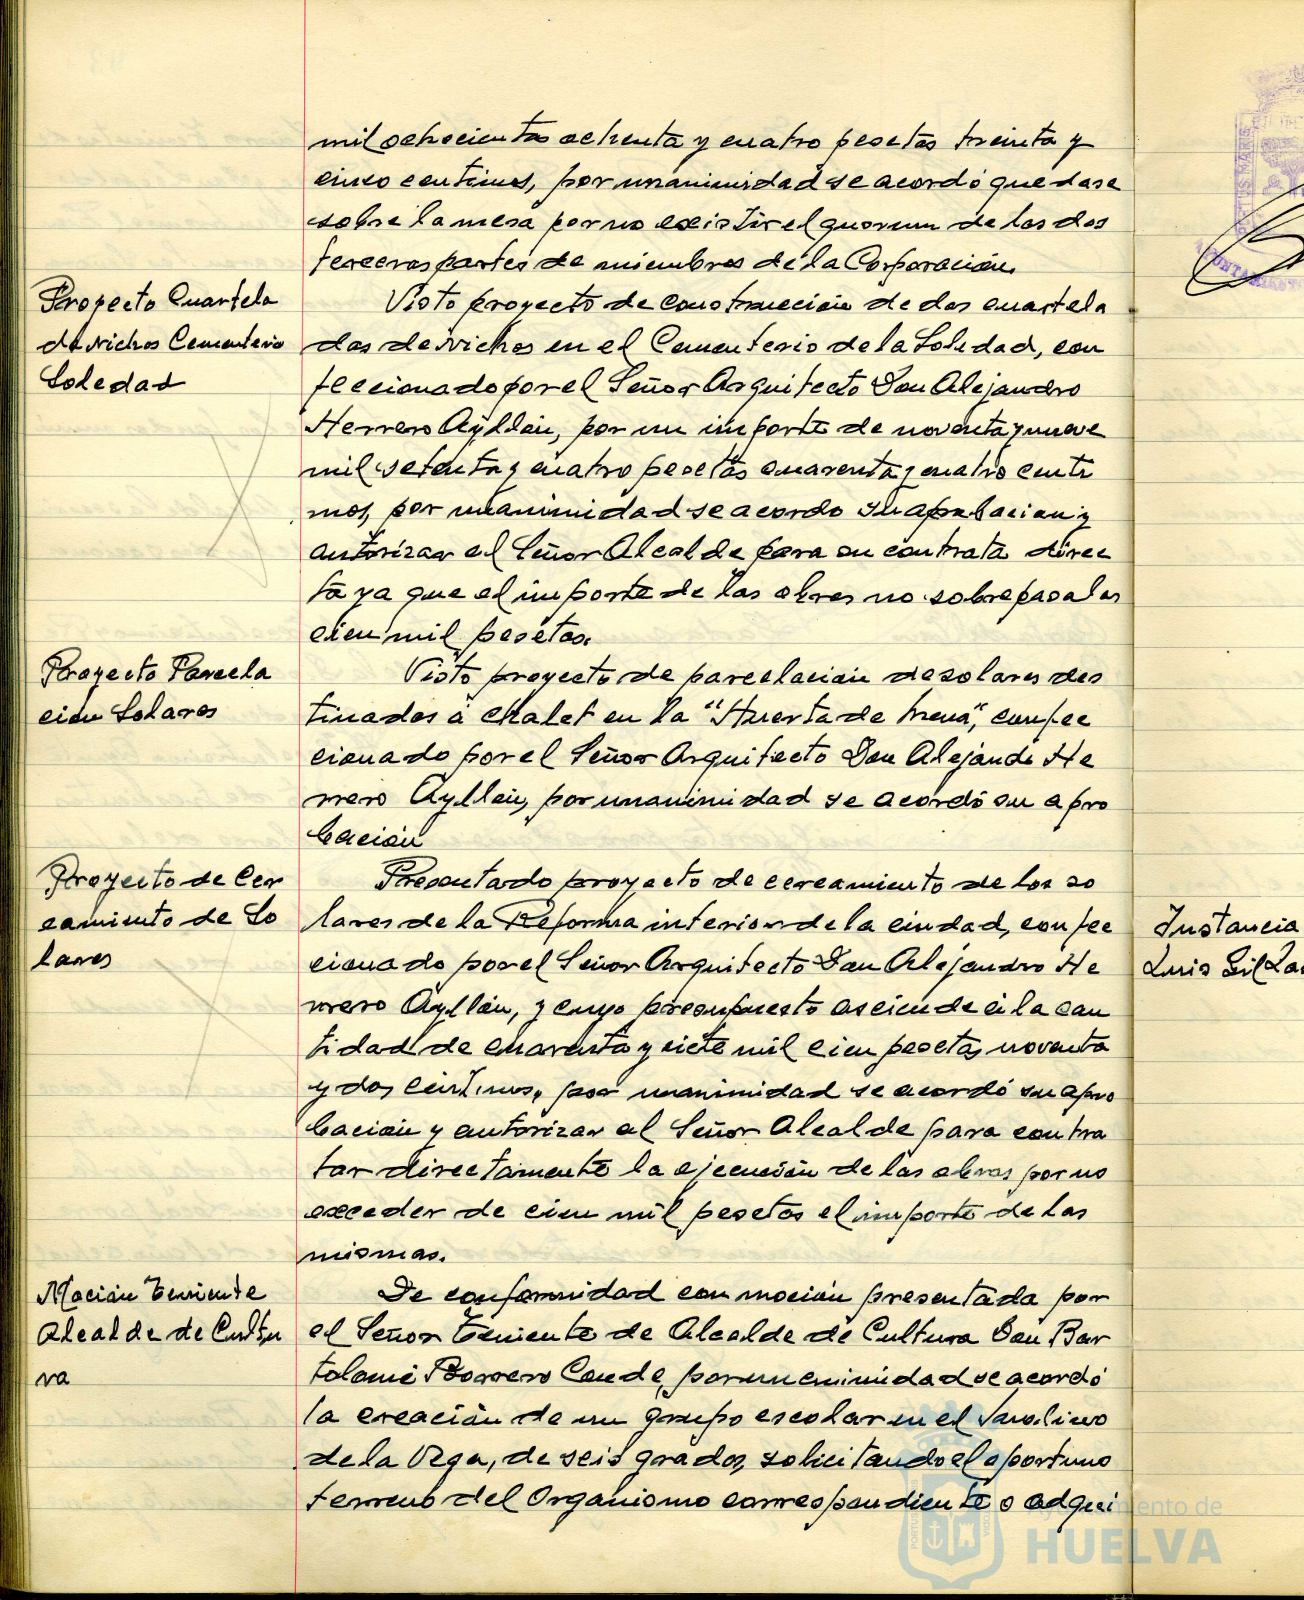 mil ochocientas ochenta y cuatro pesetas treinta y
cinco centimos, por unanimidad se acordó quedase
sobre la mesa por no existir el quorum de las dos
terceras partes de miembros de la Corporación.
Proyecto Cuartela
da nichos Cementerio
Soledad
Visto proyecto de construccion de dos cuartela
das de nichos en el Cementerio de la Soledad, con
feccionado por el Señor Arquitecto Don Alejandro
Herrero Ayllón, por un importe de noventa y nueve
mil setenta y cuatro pesetas cuarenta y cuatro centi
mos, por unanimidad se acordo su aprobacion y
autorizar al Señor Alcalde para su contrata direc
ta ya que el importe de las obras no sobrepasa las
cien mil pesetas.
Proyecto Parcela
cion Solares
Visto proyecto de parcelación de solares des
tinados a chalet en la "Huerta de Mena", confec
cionado por el Señor Arquitecto Don Alejando He
rrero Ayllón, por unanimidad se acordó su apro
bación
Proyecto de Cer
camiento de So
lares
Presentado proyecto de cercamiento de los so
lares de la Reforma interior de la ciudad, confec
cionado por el Señor Arquitecto Don Alejandro He
rrero Ayllón, y cuyo presupuesto asciende a la can
tidad de cuarenta y siete mil cien pesetas noventa
y dos centimos, por unanimidad se acordó su apro
bación y autorizar al Señor Alcalde para contra
tar directamente la ejecución de las obras por no
exceder de cien mil pesetas el importe de las
mismas.
Moción Teniente
Alcalde de Cultu
ra
De conformidad con moción presentada por
el Señor Teniente de Alcalde de Cultura Don Bar
tolomé Borrero Conde, por unanimidad se acordó
la creación de un grupo escolar en el
de la Vega, de seis grados, solicitando el oportuno
terreno del Organismo correspondiente o adqui
Instancia
Luis Gil
Ayuntamiento de
HUELVA